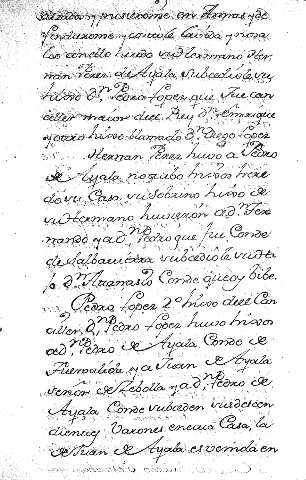 y pusieronse en Armas y de
fendieronse y con esto la vida y no ma
los an ello herido su Hermano Her
nan Perez de Ayala, subcedio le su
hijo dⁿ Pedro Lopez que fue can
ciller maior del Rey dⁿ Enrrique
y otro hijo llamado dⁿ Diego Lopez
Hernan Perez huvo a Pedro
de Ayala no hubo hijos here
do su Casa su sobrino hijo de
su Hermano huvieron a dⁿ Fer
nando y a dⁿ Pedro que fue Conde
de Salbatierra subcedio la su hi
jo dⁿ Athanasio Conde que oy bibe.
Pedro Lopez 2º hijo del Can
ciller dⁿ Pedro Lopez huvo hijos
a dⁿ Pedro de Ayala Conde de
Fuensalida, y a Juan de Ayala
señor de Cebolla y a dⁿ Pedro de
Ayala Conde subceden sus descen
dientes Varones en cuia Casa, la
de Juan de Ayala es venida en